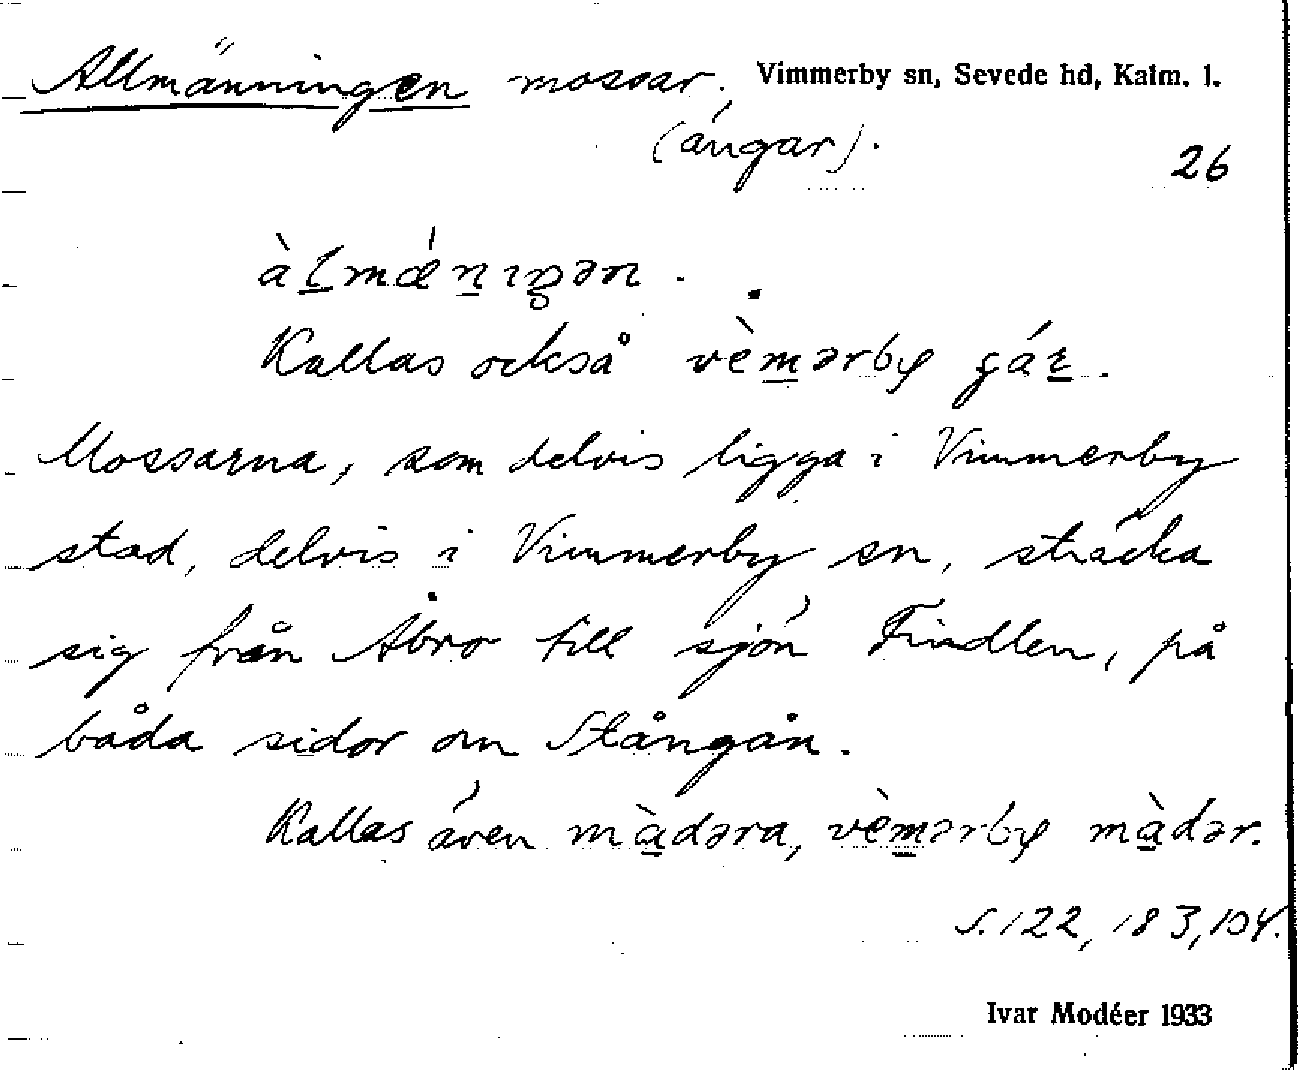 Allmänningen mossar, Vimmerby sn, Sevede hd, Kalm. l.
(ängar).
26
àlmǽnıŋən.
Kallas också vèmərby gár.
Mossarna, som delvis ligga i Vimmerby
stad, delvis i Vimmerby sn, sträcka
sig från Åbro till sjön Findlen, på
båda sidor om Stångån.
Kallas även màdəra, vèmərby màdər.
S. 122, 183, 104.
Ivar Modéer 1933